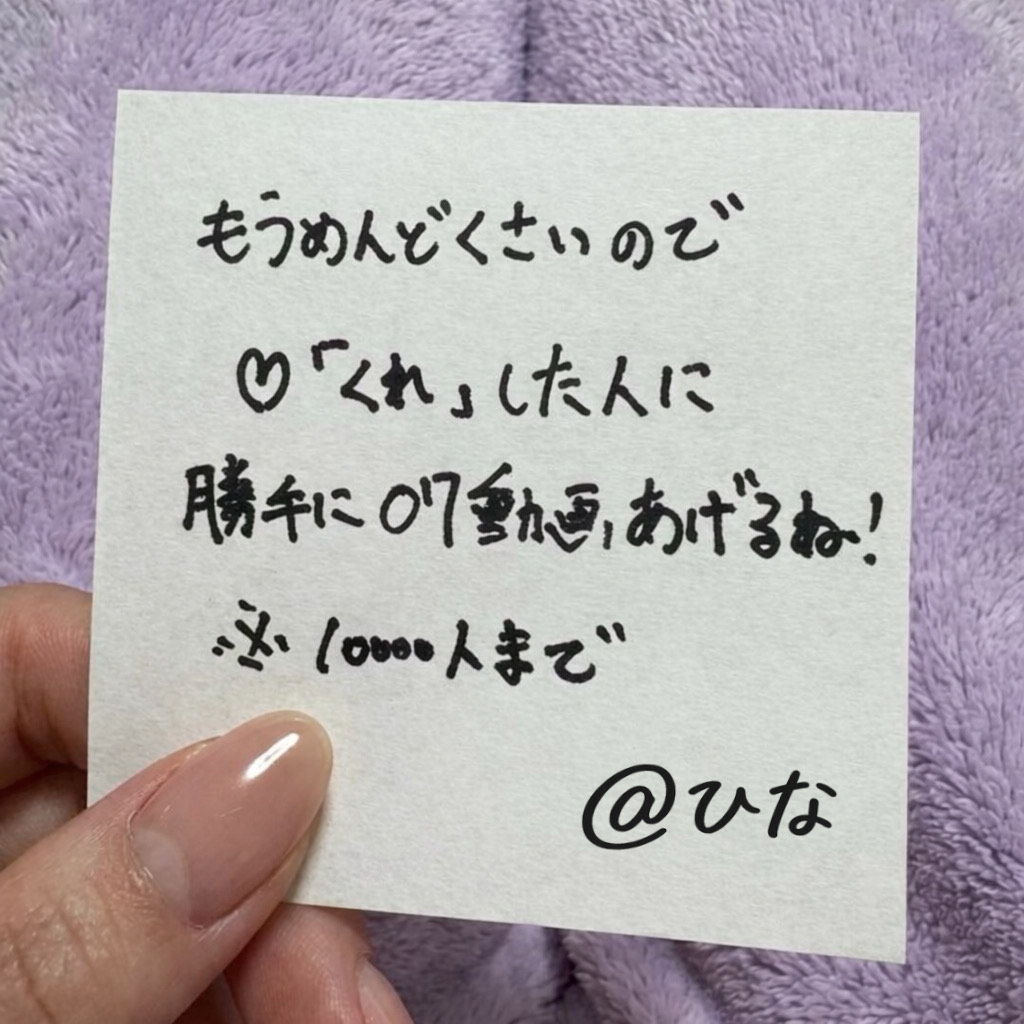 もうめんどくさいので
♡「くれ」した人に
勝手に 0'7動画、あげるね!
※10000人まで
@ひな